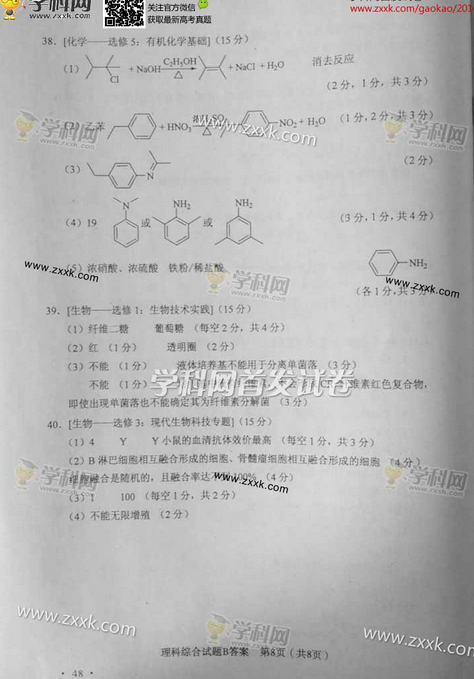 学科网 关注官方微信 获取最新高考真题
www.zxxk.com/gaokao/201
38. [化学——选修 5：有机化学基础]（15 分）
（1） Cl + NaOH C₂H₅OH △ + NaCl + H₂O 消去反应
（2 分，1 分，共 3 分）
（2）乙苯 + HNO₃ 浓H₂SO₄ △ NO₂ + H₂O （1 分，2 分，共 3 分）
（3） N （2 分）
（4）19 N 或 NH₂ 或 NH₂ （3 分，1 分，共 4 分）
（5）浓硝酸、浓硫酸 铁粉/稀盐酸 NH₂
（各 1 分，共 3 分）
39. [生物——选修 1：生物技术实践]（15 分）
（1）纤维二糖 葡萄糖 （每空 2 分，共 4 分）
（2）红 （1 分） 透明圈 （2 分）
（3）不能 （1 分） 液体培养基不能用于分离单菌落 （3 分）
不能 （1 分） 维素红色复合物，
即使出现单菌落也不能确定其为纤维素分解菌 （3 分）
40. [生物——选修 3：现代生物科技专题]（15 分）
（1）4 Y Y 小鼠的血清抗体效价最高 （每空 1 分，共 3 分）
（2）B 淋巴细胞相互融合形成的细胞、骨髓瘤细胞相互融合形成的细胞 （4 分）
细胞融合是随机的，且融合率达不到 100% （4 分）
（3）1 100 （每空 1 分，共 2 分）
（4）不能无限增殖 （2 分）
学科网首发试卷
学科网
www.zxxk.com
理科综合试题B答案 第8页（共8页）
· 48 ·